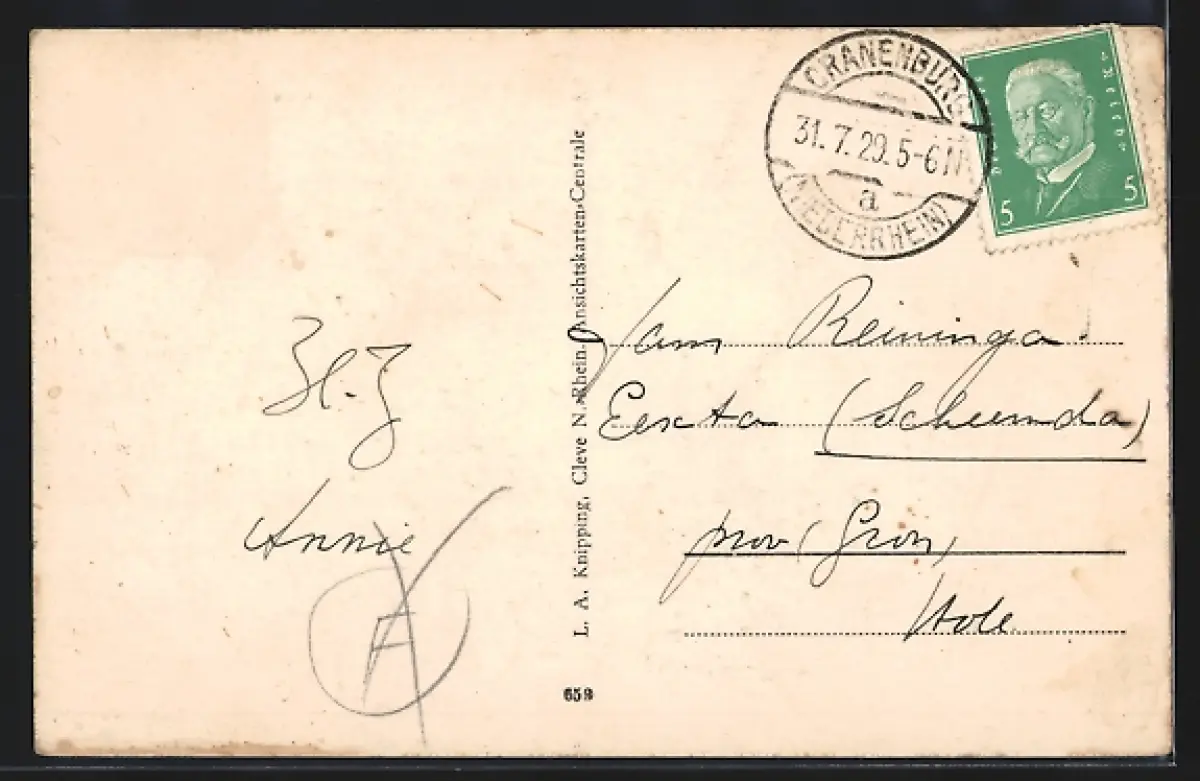 CRANENBURG
31.7.29. 5-6 N
a
(NIEDERRHEIN)
5 5
L. A. Knipping, Cleve N.-Rhein-Ansichtskarten-Centrale
Jam Reininga.
Eexta (Scheemda)
prov (Gron)
Hole
Annie
659